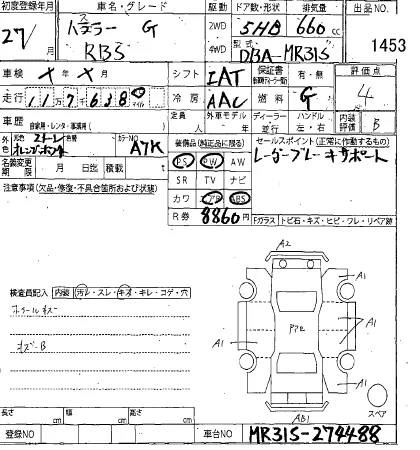 初度登録年月 車名・グレード 駆動 ドア数・形状 排気量 出品NO
27/ 月 ハスラー G 2WD 5HB 660 cc 1453
RBS 4WD 型式 DBA-MR31S
車検 × 年 × 月 シフト IAT 保証書 有・無 評価点
走行 117638 マイル 冷房 AAC 燃料 G 4
車歴 自家用・レンタ・事業用( ) 定員 人 外車モデル 年 ディーラー 並行 ハンドル 左・右 内装評価 B
外色 オレンジ カラーNO A7K 装備品(純正品に限る) セールスポイント(正常に作動するもの)
名義変更期限 月 日迄 積載 t PS PW AW レーダーブレーキサポート
注意事項(欠品・修復・不具合箇所および状態) SR TV ナビ
カワ エアB ABS
R券 8860円 Fガラス トビ石・キズ・ヒビ・ワレ・リペア跡
A2
A1
検査員記入 内装 汚レ・スレ・キズ・キレ・コゲ・穴
ホイールキズ
A1
A1
キズ・B
A1
AB1
スペア
長さ cm 幅 cm 高さ cm
登録NO 車台NO MR31S-274488